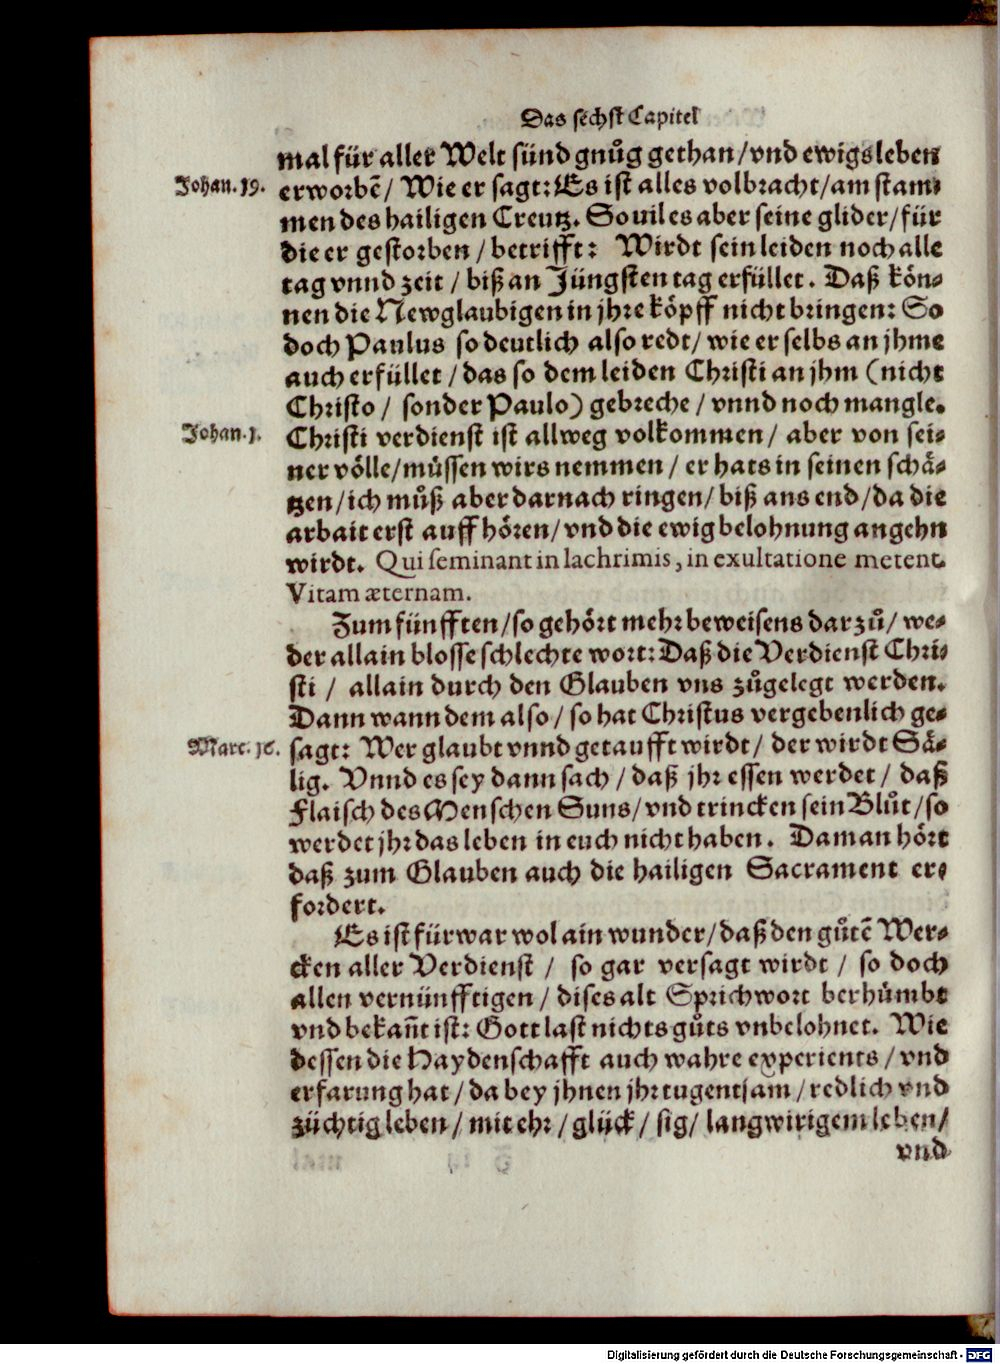 Das sechst Capitel
mal für aller Welt sünd gnůg gethan / vnd ewigs leben
Johan. 19. erworbē / Wie er sagt: Es ist alles volbracht / am stam⸗
men des hailigen Creutz. Souil es aber seine glider / für
die er gestorben / betrifft: Wirdt sein leiden noch alle
tag vnnd zeit / biß an Jüngsten tag erfüllet. Daß kön⸗
nen die Newglaubigen in jhre köpff nicht bringen: So
doch Paulus so deutlich also redt / wie er selbs an jhme
auch erfüllet / das so dem leiden Christi an jhm (nicht
Christo / sonder Paulo) gebreche / vnnd noch mangle.
Johan. 1. Christi verdienst ist allweg volkommen / aber von sei⸗
ner völle / můssen wirs nemmen / er hats in seinen schä⸗
tzen / ich můß aber darnach ringen / biß ans end / da die
arbait erst auffhören / vnd die ewig belohnung angehn
wirdt. Qui seminant in lachrimis, in exultatione metent.
Vitam æternam.
Zum fünfften / so gehört mehr beweisens darzů / we⸗
der allain blosse schlechte wort: Daß die Verdienst Chri⸗
sti / allain durch den Glauben vns zůgelegt werden.
Dann wann dem also / so hat Christus vergebenlich ge⸗
Marc. 16. sagt: Wer glaubt vnnd getaufft wirdt / der wirdt Sä⸗
lig. Vnnd es sey dann sach / daß jhr essen werdet / daß
Flaisch des Menschen Suns / vnd trincken sein Blůt / so
werdet jhr das leben in euch nicht haben. Da man hört
daß zum Glauben auch die hailigen Sacrament er⸗
fordert.
Es ist fürwar wol ain wunder / daß den gůtē Wer⸗
cken aller Verdienst / so gar versagt wirdt / so doch
allen vernünfftigen / dises alt Sprichwort berhůmbt
vnd bekañt ist: Gott last nichts gůts vnbelohnet. Wie
dessen die Haydenschafft auch wahre experients / vnd
erfarung hat / da bey jhnen jhr tugentsam / redlich vnd
züchtig leben / mit ehr / glück / sig / langwirigem leben /
vnd
Digitalisierung gefördert durch die Deutsche Forschungsgemeinschaft - DFG